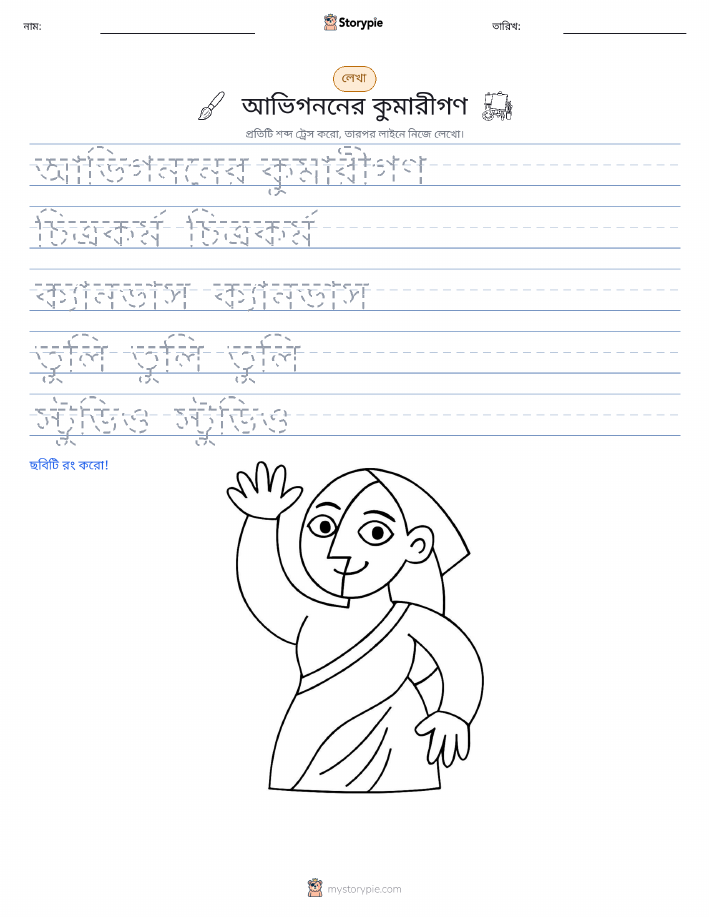 নাম:
Storypie
তারিখ:
লেখা
আভিগননের কুমারীগণ
প্রতিটি শব্দ ট্রেস করো, তারপর লাইনে নিজে লেখো।
আভিগননের কুমারীগণ
চিত্রকর্ম চিত্রকর্ম
ক্যানভাস ক্যানভাস
তুলি তুলি তুলি
স্টুডিও স্টুডিও
ছবিটি রং করো!
mystorypie.com